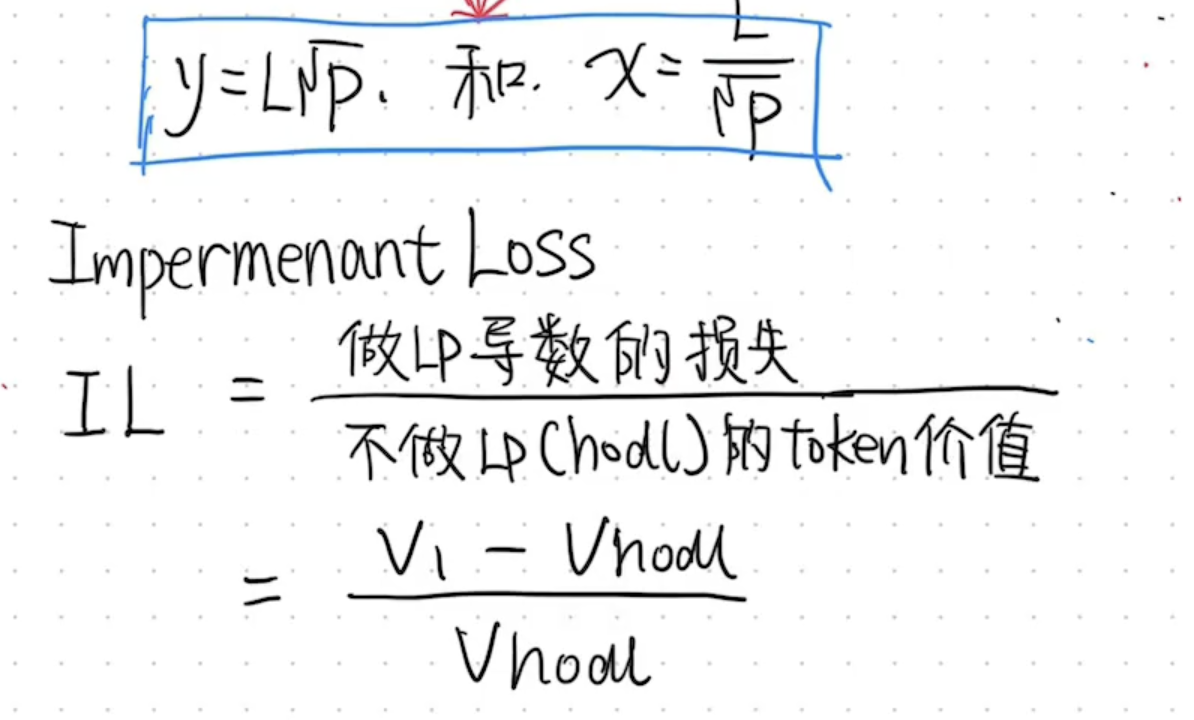 y=L√p. 和. x=L/√p
Impermenant Loss
IL = 做LP导数的损失 / 不做LP(hodl)的token价值
= V1 - Vhodl / Vhodl